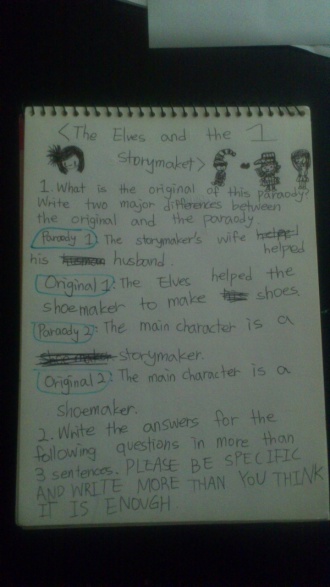 <The Elves and the 1
storymaker>
1. What is the original of this paraody?
Write two major differences between
the original and the paraody.
Paraody 1: The storymaker's wife helped
his husband.
Original 1: The Elves helped the
shoemaker to make shoes.
Paraody 2: The main character is a
storymaker.
Original 2: The main character is a
shoemaker.
2. Write the answers for the
following questions in more than
3 sentences. PLEASE BE SPECIFIC
AND WRITE MORE THAN YOU THINK
IT IS ENOUGH